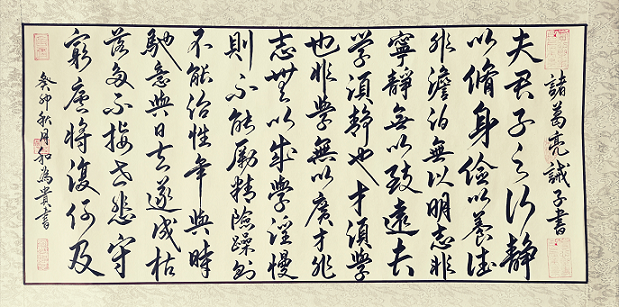 諸葛亮誡子書
夫君子之行静
以脩身儉以養德
非澹泊無以明志非
寧靜無以致遠夫
学須静也才須學
也非學無以廣才非
志無以成學淫慢
則不能勵精險躁則
不能治性年與時
馳意與日去遂成枯
落多不接世悲守
窮廬將復何及
癸卯秋月和為貴書